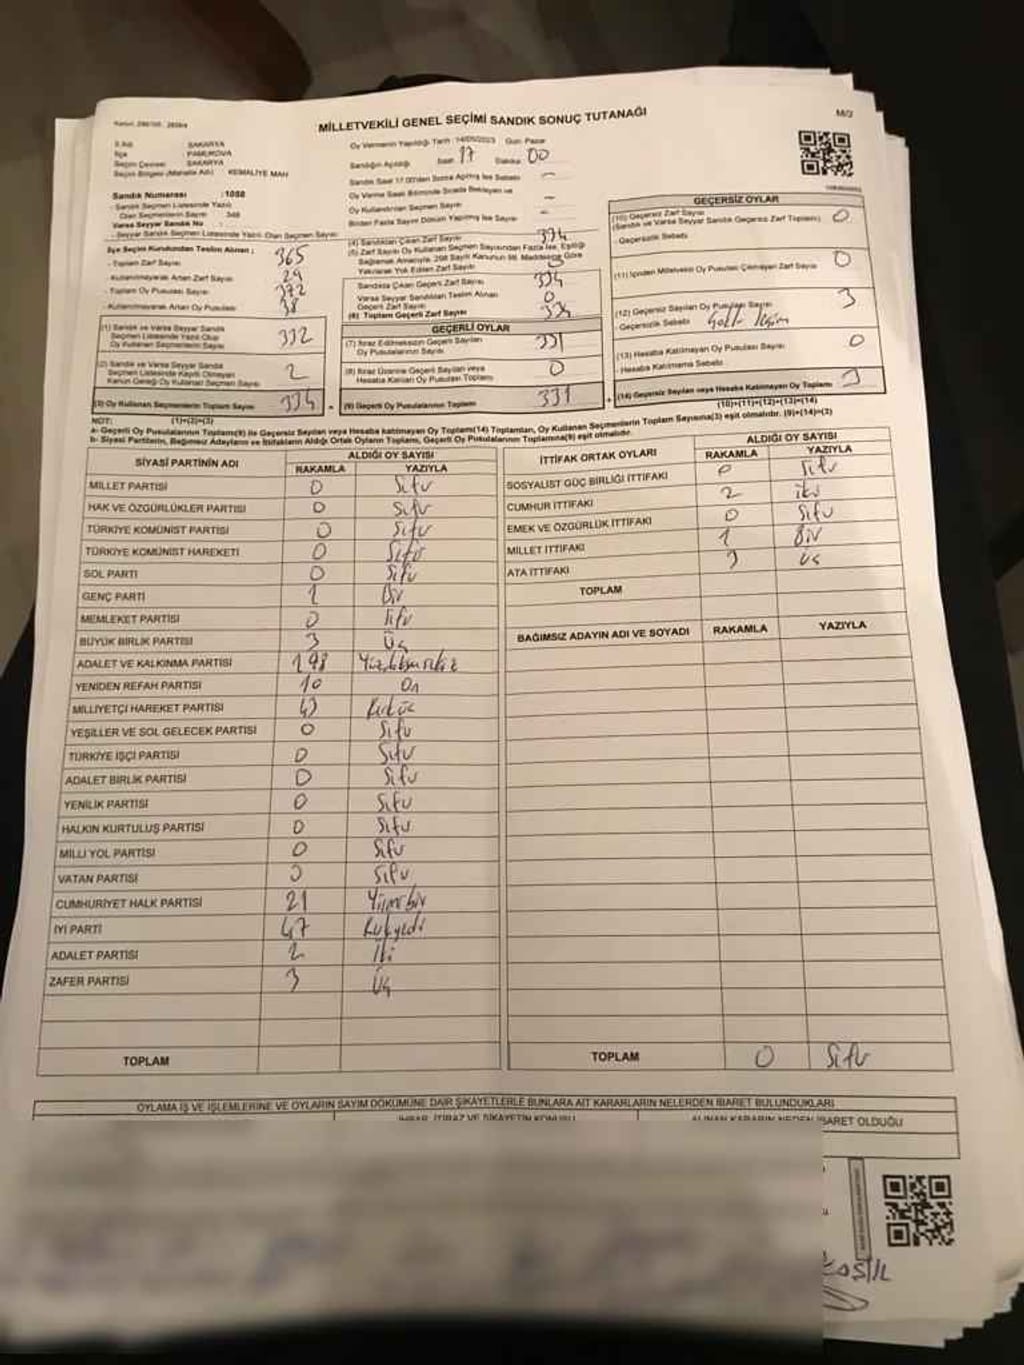 MİLLETVEKİLİ GENEL SEÇİMİ SANDIK SONUÇ TUTANAĞI
M/2
İl Adı : SAKARYA
İlçe : PAMUKOVA
Seçim Çevresi : SAKARYA
Seçim Bölgesi (Mahalle Adı) : KEMALİYE MAH
Sandık Numarası : 1088
- Sandık Seçmen Listesinde Yazılı
Olan Seçmenlerin Sayısı : 348
Varsa Seyyar Sandık No :
- Seyyar Sandık Seçmen Listesinde Yazılı Olan Seçmen Sayısı:
İlçe Seçim Kurulundan Teslim Alınan ;
- Toplam Zarf Sayısı: 365
- Kullanılmayarak Artan Zarf Sayısı:
- Toplam Oy Pusulası Sayısı: 372
- Kullanılmayarak Artan Oy Pusulası: 38
(1) Sandık ve Varsa Seyyar Sandık
Seçmen Listesinde Yazılı Olup
Oy Kullanan Seçmenlerin Sayısı: 332
(2) Sandık ve Varsa Seyyar Sandık
Seçmen Listesinde Kayıtlı Olmayan
Kanun Gereği Oy Kullanan Seçmen Sayısı: 2
(3) Oy Kullanan Seçmenlerin Toplam Sayısı: 334
(1)+(2)=(3)
Oy Vermenin Yapıldığı Tarih :14/05/2023 Gün: Pazar
Sandığın Açıldığı Saat 17 Dakika 00
Sandık Saat 17.00'den Sonra Açılmış İse Sebebi —
Oy Verme Saati Bitiminde Sırada Bekleyen ve
Oy Kullandırılan Seçmen Sayısı: —
Birden Fazla Sayım Döküm Yapılmış İse Sayısı: —
(4) Sandıktan Çıkan Zarf Sayısı: 334
(5) Zarf Sayısı Oy Kullanan Seçmen Sayısından Fazla İse, Eşitliği
Sağlamak Amacıyla, 298 Sayılı Kanunun 98. Maddesine Göre
Yakılarak Yok Edilen Zarf Sayısı:
Sandıkta Çıkan Geçerli Zarf Sayısı: 334
Varsa Seyyar Sandıktan Teslim Alınan
Geçerli Zarf Sayısı: 0
(6) Toplam Geçerli Zarf Sayısı: 334
GEÇERLİ OYLAR
(7) İtiraz Edilmeksizin Geçerli Sayılan
Oy Pusulalarının Sayısı: 331
(8) İtiraz Üzerine Geçerli Sayılan veya
Hesaba Katılan Oy Pusulası Toplamı: 0
(9) Geçerli Oy Pusulalarının Toplamı: 331
GEÇERSİZ OYLAR
(10) Geçersiz Zarf Sayısı
(Sandık ve Varsa Seyyar Sandık Geçersiz Zarf Toplamı): 0
- Geçersizlik Sebebi:
(11) İçinden Milletvekili Oy Pusulası Çıkmayan Zarf Sayısı: 0
(12) Geçersiz Sayılan Oy Pusulası Sayısı: 3
- Geçersizlik Sebebi:
(13) Hesaba Katılmayan Oy Pusulası Sayısı: 0
- Hesaba Katılmama Sebebi:
(14) Geçersiz Sayılan veya Hesaba Katılmayan Oy Toplamı: 3
(10)+(11)+(12)+(13)=(14)
NOT:
a- Geçerli Oy Pusulalarının Toplamı(9) ile Geçersiz Sayılan veya Hesaba katılmayan Oy Toplamı(14) Toplamları, Oy Kullanan Seçmenlerin Toplam Sayısına(3) eşit olmalıdır. (9)+(14)=(3)
b- Siyasi Partilerin, Bağımsız Adayların ve İttifakların Aldığı Ortak Oyların Toplamı, Geçerli Oy Pusulalarının Toplamına(9) eşit olmalıdır.
SİYASİ PARTİNİN ADI ALDIĞI OY SAYISI
RAKAMLA YAZIYLA
MİLLET PARTİSİ 0 Sıfır
HAK VE ÖZGÜRLÜKLER PARTİSİ 0 Sıfır
TÜRKİYE KOMÜNİST PARTİSİ 0 Sıfır
TÜRKİYE KOMÜNİST HAREKETİ 0 Sıfır
SOL PARTİ 0 Sıfır
GENÇ PARTİ 1 Bir
MEMLEKET PARTİSİ 0 Sıfır
BÜYÜK BİRLİK PARTİSİ 3 Üç
ADALET VE KALKINMA PARTİSİ 198 Yüzdoksansekiz
YENİDEN REFAH PARTİSİ 10 On
MİLLİYETÇİ HAREKET PARTİSİ 43 Kırküç
YEŞİLLER VE SOL GELECEK PARTİSİ 0 Sıfır
TÜRKİYE İŞÇİ PARTİSİ 0 Sıfır
ADALET BİRLİK PARTİSİ 0 Sıfır
YENİLİK PARTİSİ 0 Sıfır
HALKIN KURTULUŞ PARTİSİ 0 Sıfır
MİLLİ YOL PARTİSİ 0 Sıfır
VATAN PARTİSİ 0 Sıfır
CUMHURİYET HALK PARTİSİ 21 Yirmibir
İYİ PARTİ 47 Kırkyedi
ADALET PARTİSİ 2 İki
ZAFER PARTİSİ 3 Üç
TOPLAM
İTTİFAK ORTAK OYLARI ALDIĞI OY SAYISI
RAKAMLA YAZIYLA
SOSYALİST GÜÇ BİRLİĞİ İTTİFAKI 0 Sıfır
CUMHUR İTTİFAKI 2 iki
EMEK VE ÖZGÜRLÜK İTTİFAKI 0 Sıfır
MİLLET İTTİFAKI 1 Bir
ATA İTTİFAKI 3 üç
TOPLAM
BAĞIMSIZ ADAYIN ADI VE SOYADI RAKAMLA YAZIYLA
TOPLAM 0 Sıfır
OYLAMA İŞ VE İŞLEMLERİNE VE OYLARIN SAYIM DÖKÜMÜNE DAİR ŞİKAYETLERLE BUNLARA AİT KARARLARIN NELERDEN İBARET BULUNDUKLARI
İHBAR, İTİRAZ VE ŞİKAYETİN KONUSU ALINAN KARARIN NEDEN İBARET OLDUĞU